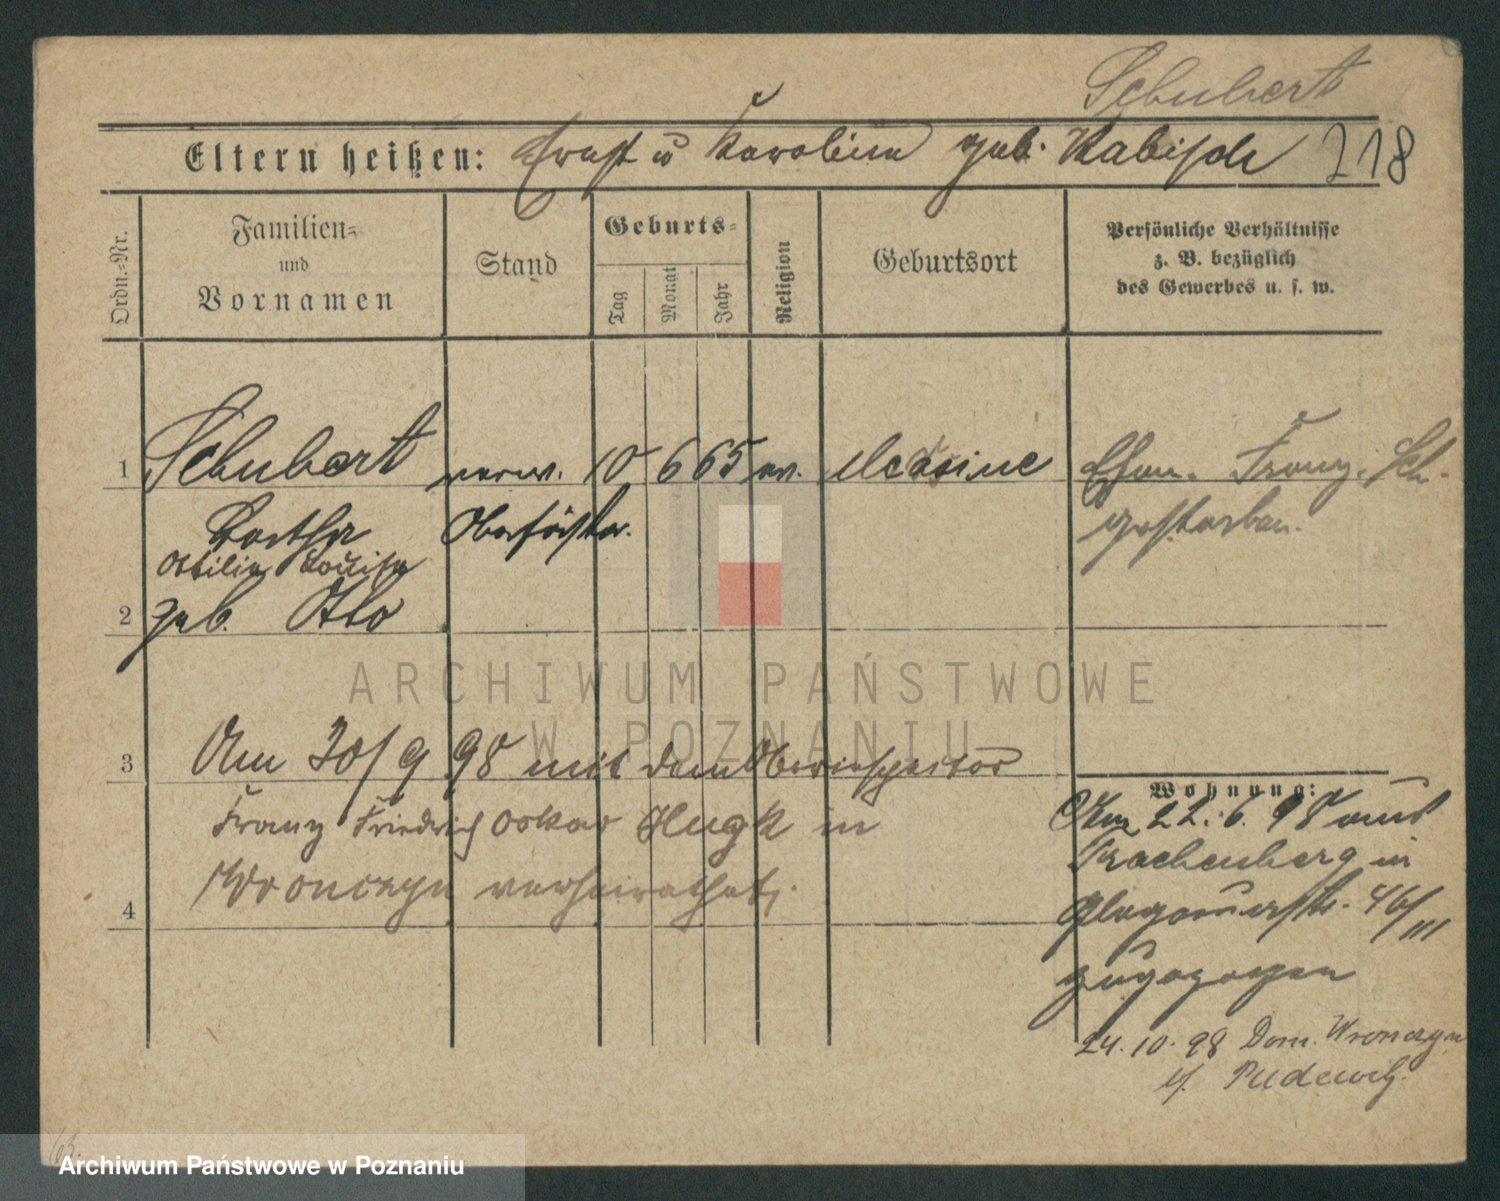 Schubert
Eltern heißen: Ernst u Karoline geb. Kabisch 218
Ordn.-Nr.
Familien-
und
Vornamen
Stand
Geburts-
Tag
Monat
Jahr
Religion
Geburtsort
Persönliche Verhältnisse
z. B. bezüglich
des Gewerbes u. s. w.
1 Schubert verw. 10 6 65 ev. Ehem. Franz Sch.
Oberförster. gestorben.
Ottilie Louise
2 geb. Otto
3 Am 30/9 98 mit dem Oberinspektor
Franz Friedrich Oskar Klugk in
4 Wronczyn verheirathet.
Wohnung:
Am 22.6.98 aus
Trachenberg in
Glogauerstr. 46/III
zugezogen
24.10.98 Dom. Wronczyn
b. Pudewitz.
63.
ARCHIWUM PAŃSTWOWE
W POZNANIU
Archiwum Państwowe w Poznaniu